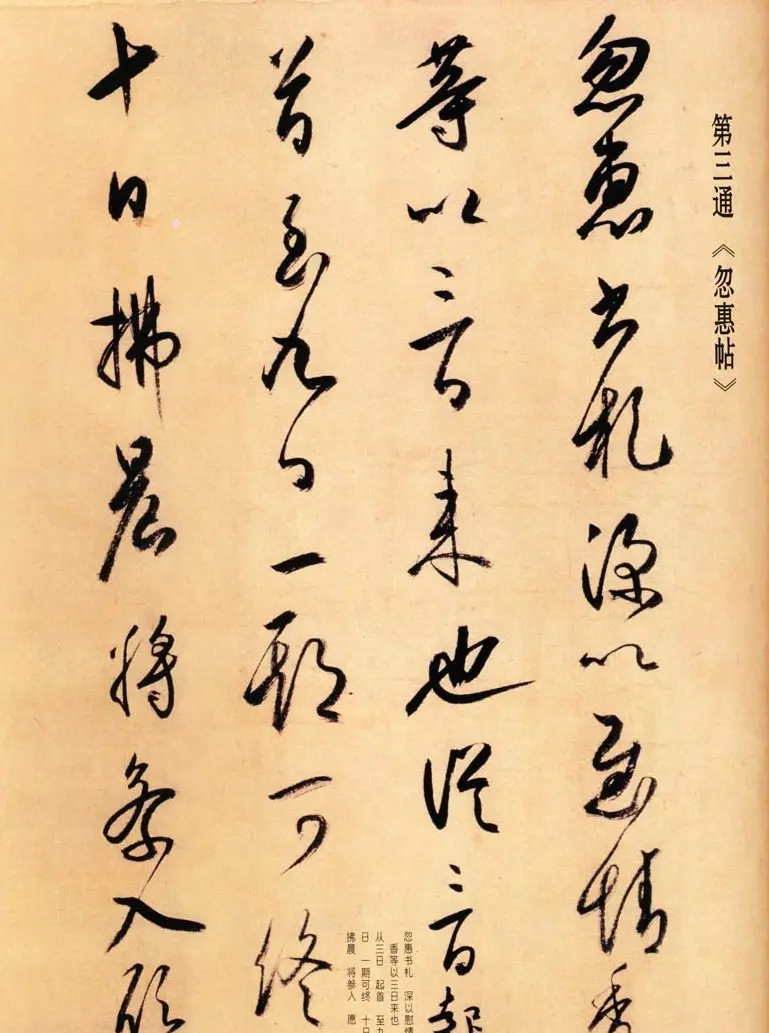 第三通 《忽惠帖》
忽惠书札深以慰情香
等以三日来也从三日起
首至九日一期可终
十日拂晨将参入愿
忽惠书札 深以慰情
香等以三日来也
从三日 起首 至九
日 一期可终 十日
拂晨 将参入 愿